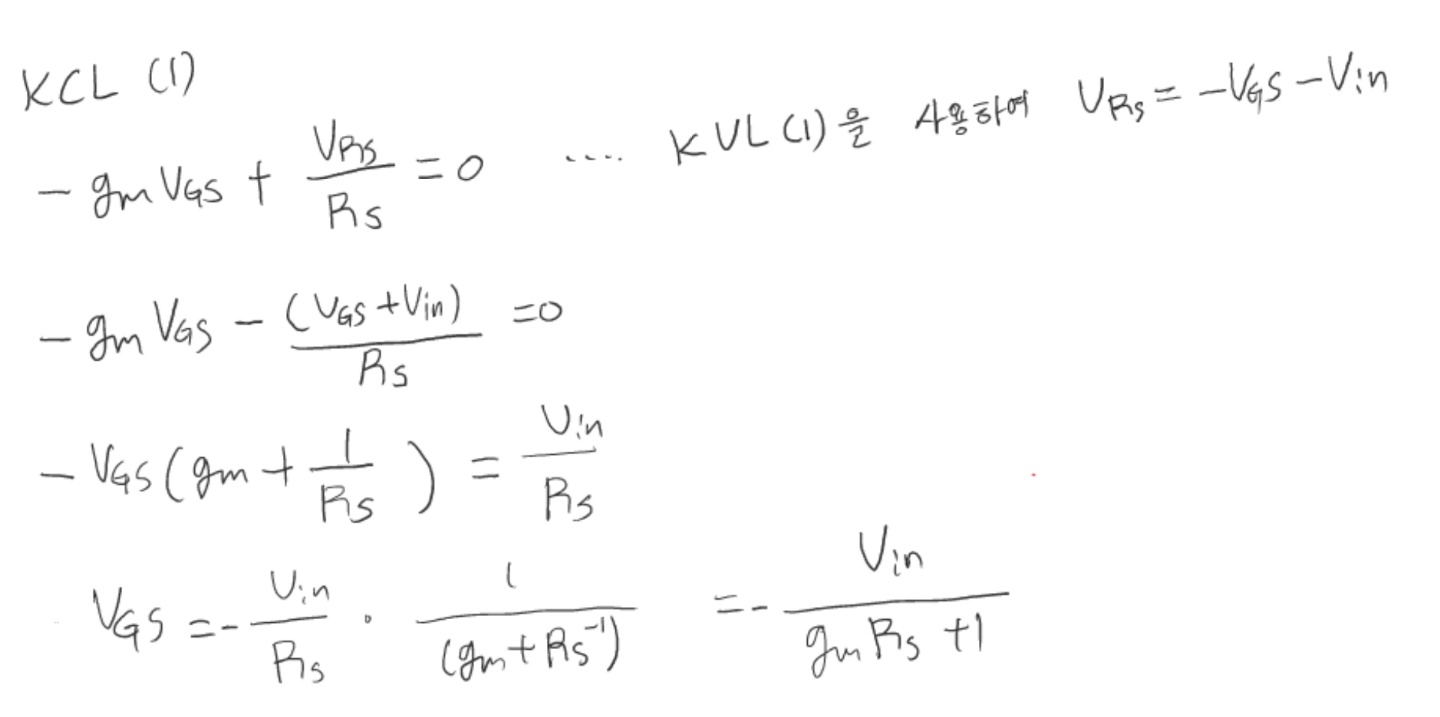 KCL (1)
- gm VGS + VRS / RS = 0 .... KVL (1)을 사용하여 VRS = -VGS - Vin
- gm VGS - (VGS + Vin) / RS = 0
- VGS (gm + 1 / RS) = Vin / RS
VGS = - Vin / RS · 1 / (gm + RS⁻¹) = - Vin / gm RS + 1